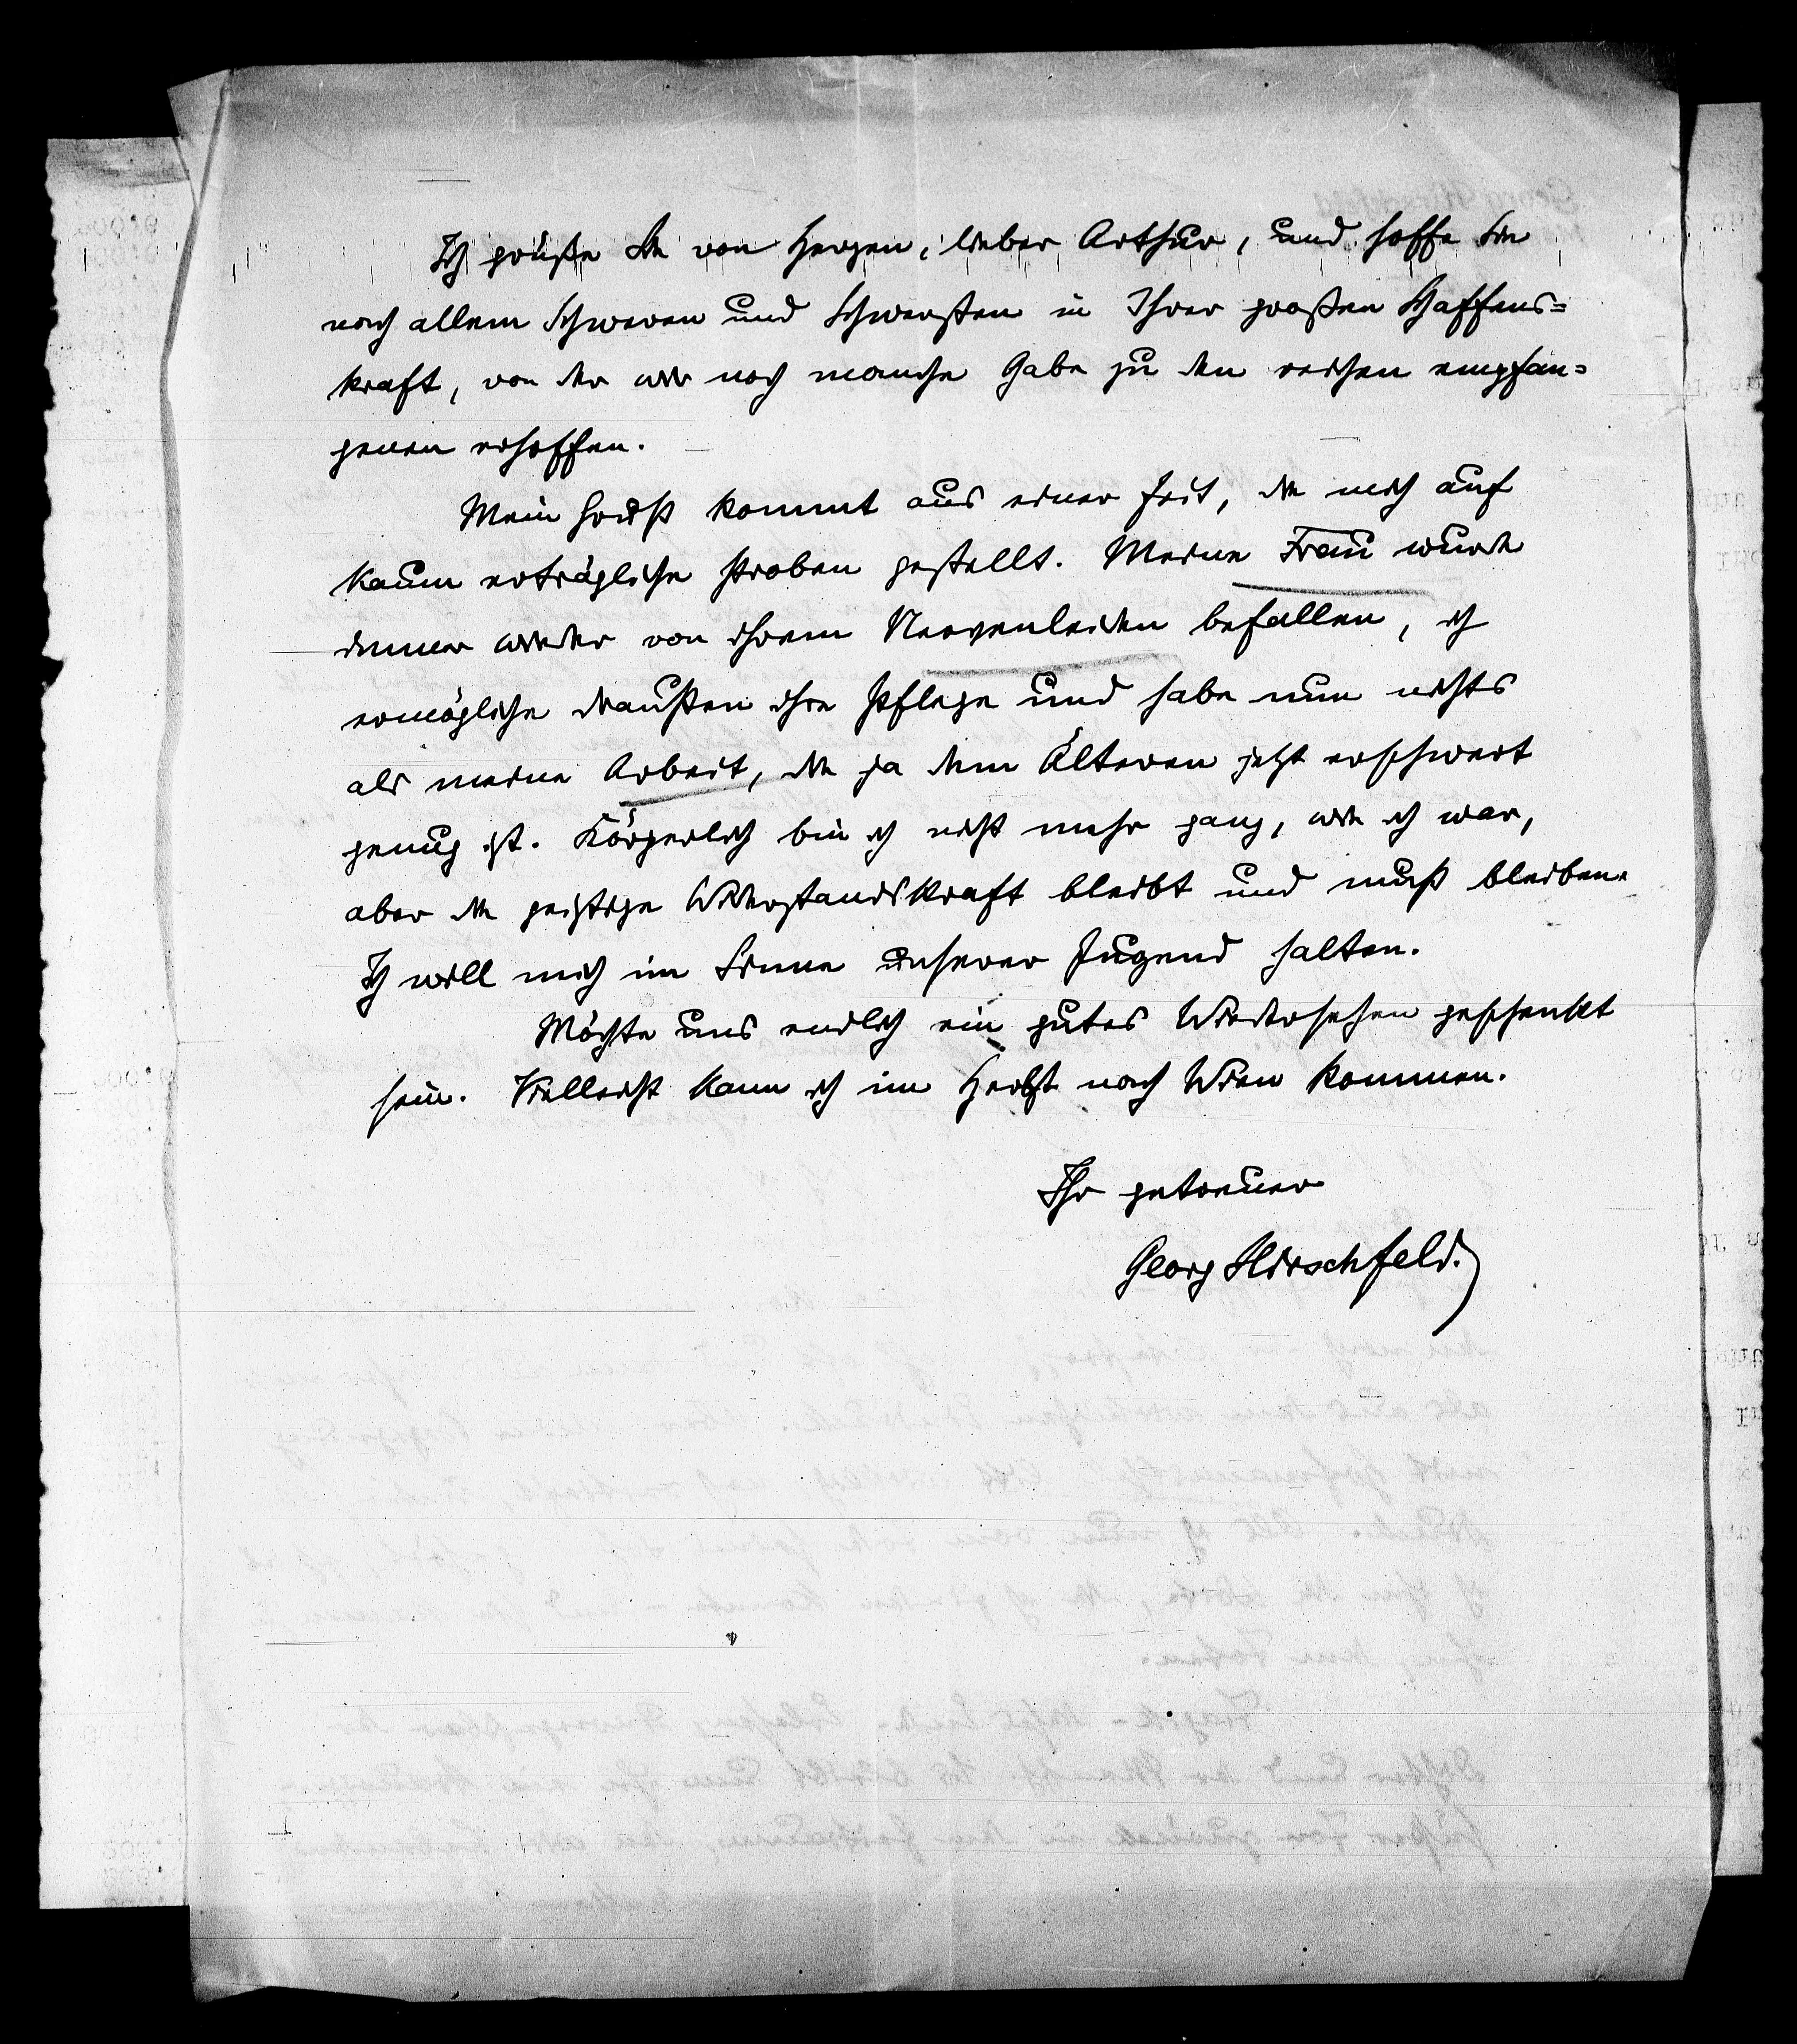 Ich grüße Sie von Herzen, lieber Arthur, und hoffe Sie
nach allem Schweren und Schwersten in Ihrer großen Schaffens=
kraft, von der wir noch manche Gabe zu den reichen empfan=
genen erhoffen.
Mein Gruß kommt aus einer Zeit, die mich auf
kaum erträgliche Proben gestellt. Meine Frau wurde
immer wieder von ihrem Nervenleiden befallen, ich
ermögliche draußen ihre Pflege und habe nun nichts
als meine Arbeit, die ja dem Älteren jetzt erschwert
genug ist. Körperlich bin ich nicht mehr ganz, wie ich war,
aber die geistige Widerstandskraft bleibt und muß bleiben.
Ich will mich im Sinne unserer Jugend halten.
Möchte uns endlich ein gutes Wiedersehen geschenkt
sein. Vielleicht kann ich im Herbst nach Wien kommen.
Ihr getreuer
Georg Hirschfeld.